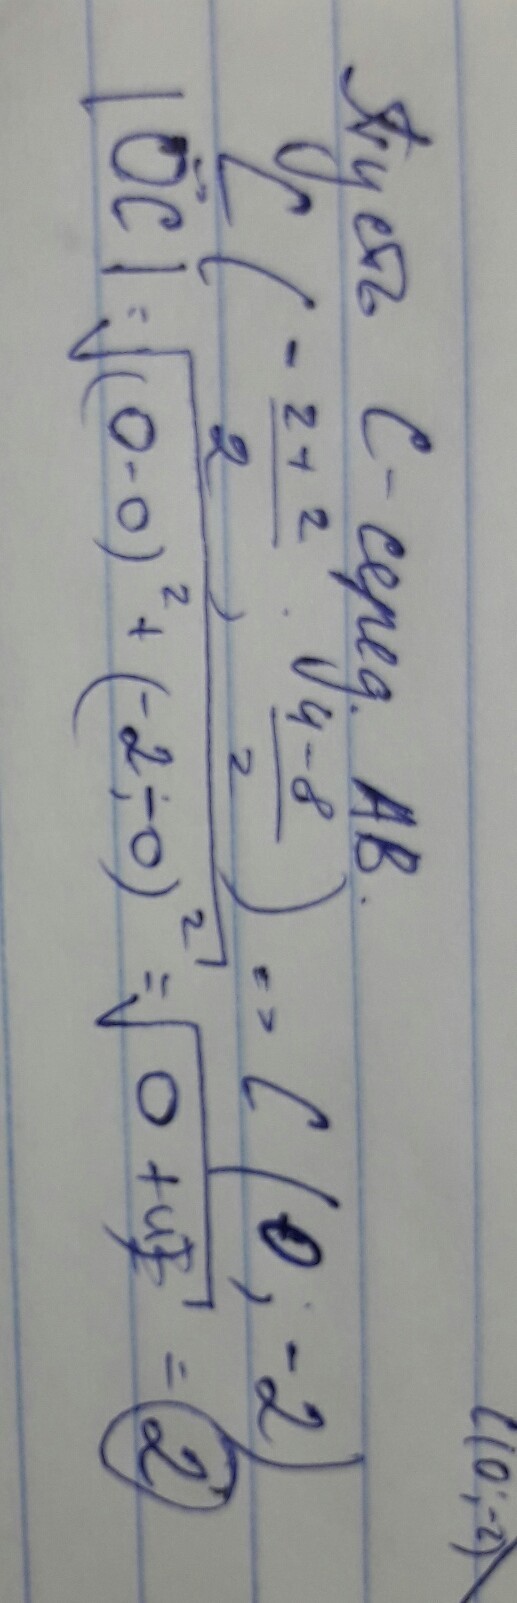 C(0;-2)
Пусть C - серед. AB.
C(-2+2/2; 4-8/2) => C(0;-2)
|OC| = √(0-0)² + (-2-0)² = √0+4 = 2